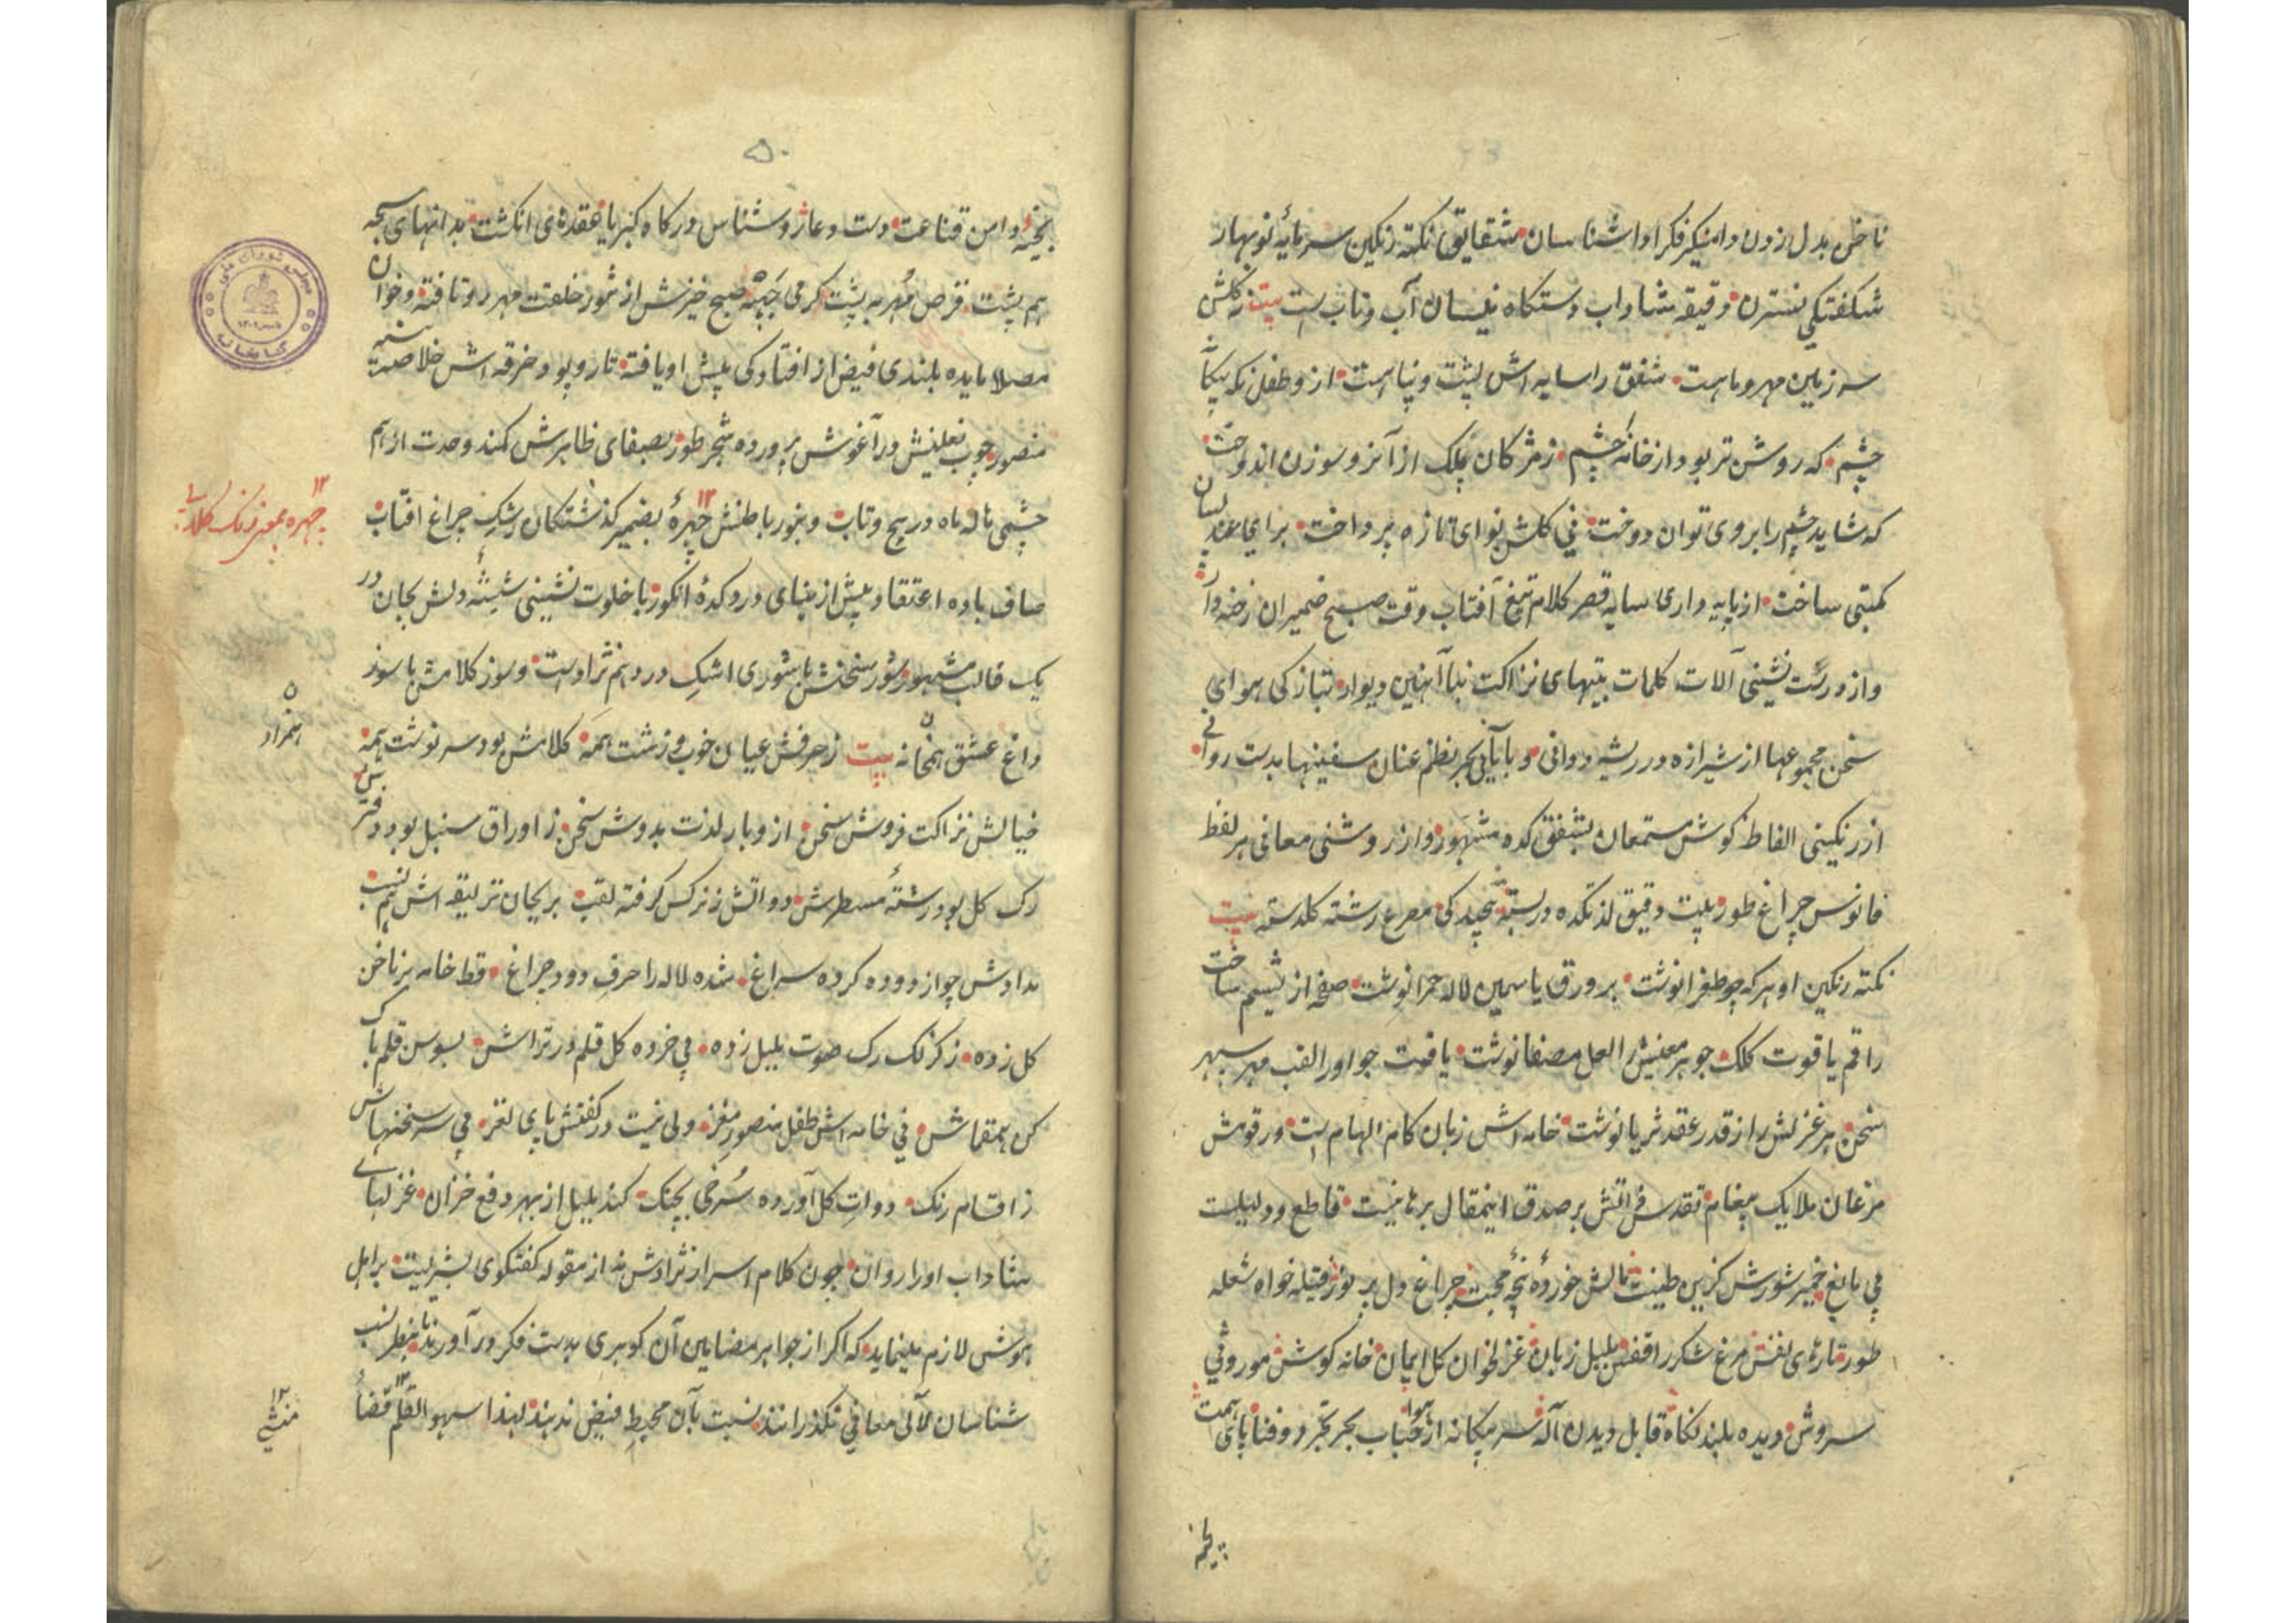 ناخن بدل زدن دامنکیر فکر اداشناسان شقایق نکته رنکین سرمایهٔ نوبهار
شکفتکی نسترن دقیقه شاداب دستکاه نیسان آب وتاب ست بیت زکلش
سرزمین مهر وماهست شفق را سایه اش پشت وپناهست از وطفل نکه
چشم که روشن تر بود از خانهٔ چشم زمژکان پلک از آنرو سوزن اندوخت
که شاید چشم را بر وی توان دوخت نی کلکش نوای تازه پرداخت برای
مکتبی ساخت از پایه داری سایه قصر کلام تیغ آفتاب وقت صبح ضمیران رخنه دار
واز درست نشینی آلات کلمات بیتهای نزاکت بنا آهنین دیوار بتازکی هوای
سخن مجموعها از شیرازه در ریشه دوانی و با بحر نظم عنان سفینها بدست روانی
از رنکینی الفاظ کوش مستمعان بشفق کده مشهور واز روشنی معانی هر لفظ
فانوس چراغ طور بیت دقیق لذتکده در بسته پیچیدکی مصرع رشته کلدسته بیت
نکته رنکین او هر که چو طغرا نوشت بر ورق یاسمین لاله حمرا نوشت صفحه از سیم ساخت
راقم یاقوت کلک جوهر معنیش را لعل مصفا نوشت یافت چو او را لقب مهر سپهر
سخن هر غزلش را ز قدر عقد ثریا نوشت خامه اش زبان کام الهام است ورقومش
مرغان ملایک پیغام تقدس ذاتش بر صدق اینمقال برهانیست قاطع ودلیلیست
خمیر شورش کزین طینت مالش خوردهٔ پنجهٔ محبت چراغ دل پر نور فتیله خواه شعله
طور تارهای نفس مرغ شکر را قفس بلبل زبان غزلخوان کل ایمان خانه کوش موروثی
سروش دیده بلند نکاه قابل دیدن آله سر پیکانه از هوا حباب بحر تجرد وفنا پای همت
بخیه
۵۰
بخیهٔ دامن قناعت دست دعا روشناس درکاه کبریا عقدهای انکشت بدانهای سبحه
هم پشت قرص مهر به پشت کرمی جبههٔ صبح خیزش از تنور خلقت مهر روتافته وخوان
مصلا مایده بلندی فیض از افتادکی پیش او یافته تار وپود خرقه اش خلاصه پنبه
منصور چوب نعلینش در آغوش پرورده شجر طور بصفای ظاهرش کمند وحدت از هم
چشمی هاله ماه در پیچ وتاب وبنور باطنش چهرهٔ بضمیر کذشتکان رشک چراغ آفتاب
۱۲ چهره بمعنی رنک
صاف باده اعتقاد پیش از بنای دردکدهٔ انکور با خلوت نشینی شیشهٔ دلش بجان در
یک قالب مشهور شور سخنش با شوری اشک در دهم تراوست وسوز کلامش با سوز
داغ عشق همخانه بیت زحرفش عیان خوب وزشت همه کلامش بود سرنوشت همه
همزاد
خیالش نزاکت فروش سخن ازو بار لذت بدوش سخن ز اوراق سنبل بود دفترش
رک کل بود رشتهٔ مسطرش دواتش زنرکس کرفته لقب بریحان تر لیقه اش هم نسب
مدادش چو از دوده کرده سراغ شده لاله را حرف دود چراغ قط خامه بر ناخن
کل زده زکزلک رک صوت بلبل زده پی خرده کل قلم در تراش ببوس قلم پاک
کن همقماش نی خامه اش طفل منصور مغز ولی نیست در کفتنش پای لغز پی سر سخنهاش
ز اقسام رنک دوات کل آورده سرخی بچنک کند بلبل از بهر دفع خزان غزلهای
شاداب اورا روان چون کلام اسرار تراوش نه از مقوله کفتکوی بشریست بر اهل
هوش لازم مینماید که اکر از جواهر مضامین آن کوهری بدست فکر در آورند تا بنظر نسب
شناسان لآلی معانی نکذرانند نسبت بآن محیط فیض ندهند لهذا سهو القلم قضا
۱۲ منشی